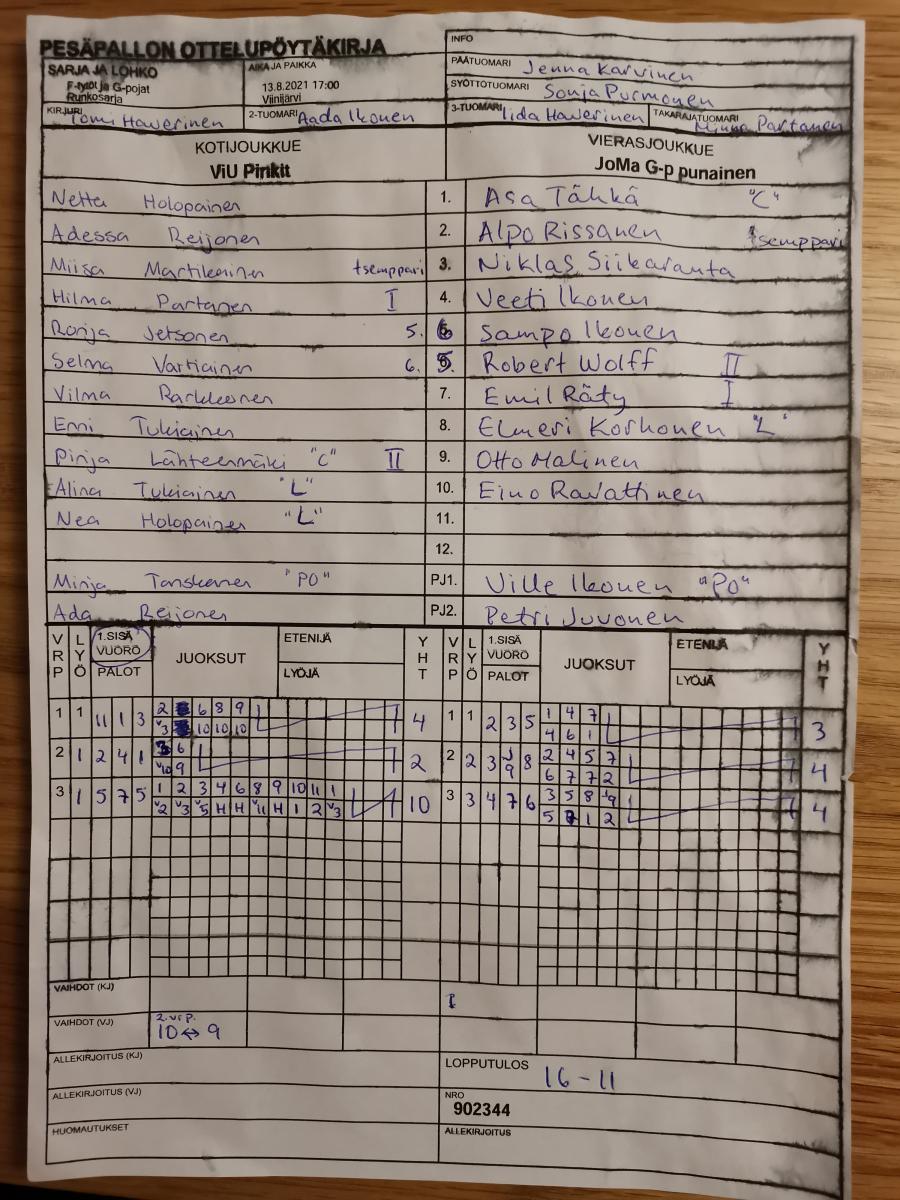 PESÄPALLON OTTELUPÖYTÄKIRJA
INFO
SARJA JA LOHKO
F-tytöt ja G-pojat
Runkosarja
AIKA JA PAIKKA
13.8.2021 17:00
Viinijärvi
PÄÄTUOMARI Jenna Karvinen
SYÖTTÖTUOMARI Sonja Purmonen
KIRJURI Tomi Haverinen
2-TUOMARI Aada Ikonen
3-TUOMARI Iida Haverinen
TAKARAJATUOMARI Minna Partanen
KOTIJOUKKUE
ViU Pinkit
VIERASJOUKKUE
JoMa G-p punainen
Netta Holopainen 1. Asa Tähkä "C"
Adessa Reijonen 2. Alpo Rissanen tsemppari
Miisa Martikainen tsemppari 3. Niklas Siikaranta
Hilma Partanen I 4. Veeti Ikonen
Ronja Jetsonen 5. 6 Sampo Ikonen
Selma Vartiainen 6. 5. Robert Wolff II
Vilma Parkkonen 7. Emil Räty I
Enni Tukiainen 8. Elmeri Korhonen "L"
Pinja Lähteenmäki "C" II 9. Otto Malinen
Alina Tukiainen "L" 10. Eino Ravattinen
Nea Holopainen "L" 11.
12.
Minja Tanskanen "PO" PJ1. Ville Ikonen "PO"
Ada Reijonen PJ2. Petri Juvonen
VRP LYÖ 1.SISÄVUORO PALOT JUOKSUT ETENIJÄ LYÖJÄ YHT VRP LYÖ 1.SISÄVUORO PALOT JUOKSUT ETENIJÄ LYÖJÄ YHT
1 1 11 1 3 2 6 8 9 4 1 1 2 3 5 1 4 7 3
v3 10 10 10 4 6 1
2 1 2 4 1 3 6 2 2 2 3 9 8 2 4 5 7 4
v10 9 6 7 7 2
3 1 5 7 5 1 2 3 4 6 8 9 10 11 1 10 3 3 4 7 6 3 5 8 9 4
v2 v3 v5 H H v11 H 1 2 v3 5 1 2
VAIHDOT (KJ)
VAIHDOT (VJ) 2.vrp. 10 ↔ 9
ALLEKIRJOITUS (KJ)
LOPPUTULOS 16 - 11
ALLEKIRJOITUS (VJ)
NRO
902344
HUOMAUTUKSET
ALLEKIRJOITUS